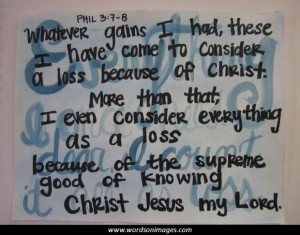 PHIL 3:7-8
Whatever gains I had, these
I have come to consider
a loss because of Christ.
More than that,
I even consider everything
as a loss
because of the supreme
good of knowing
Christ Jesus my Lord.
www.wordsonimages.com